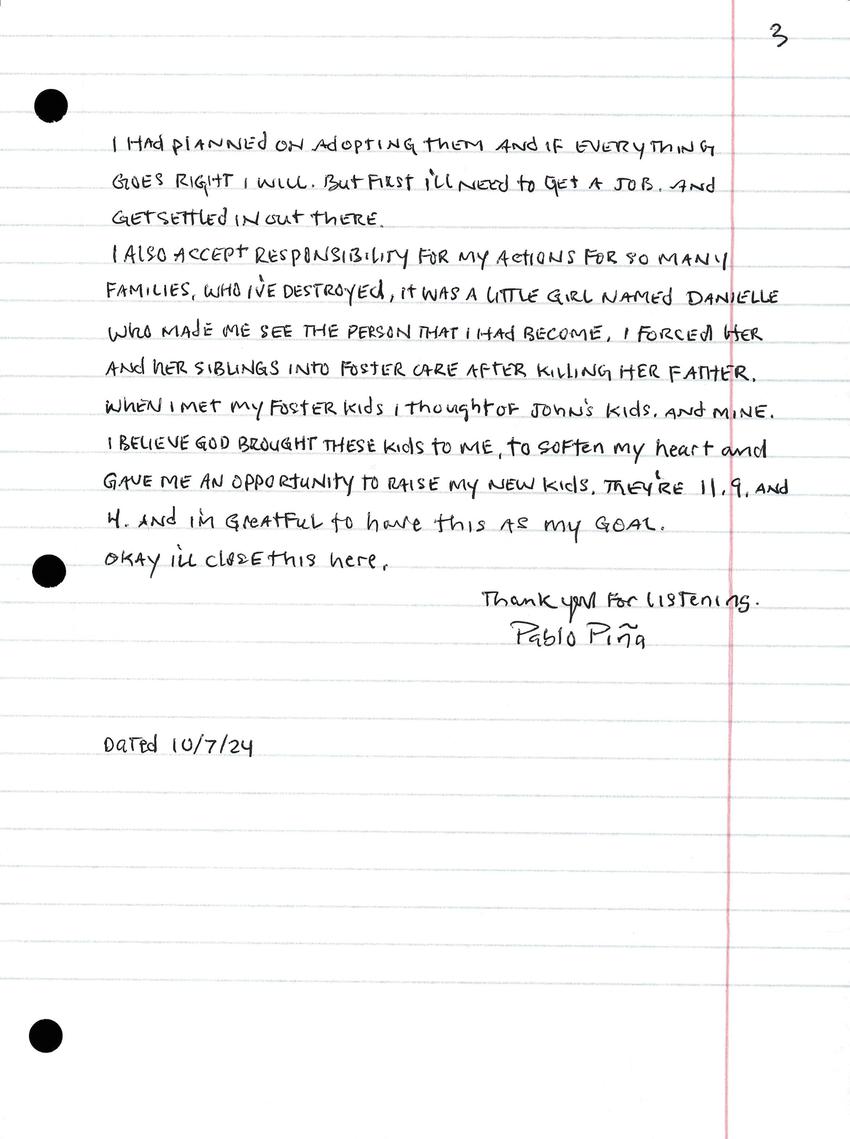 3
I HAd plANNEd ON AdOPTING thEM ANd IF EVERYThING
GOES RIGHT I WILL. But FIRST I'll NEEd to GET A JOB. ANd
GET SETTlEd IN Out thERE.
I AlSO ACCEPT RESPONSIBILITY FOR MY ACTIONS FOR SO MANY
FAMILIES, WHO I'VE DESTROYEd, IT WAS A LITTLE GIRL NAMED DANIELLE
WHO MADE ME SEE THE PERSON THAT I HAd BECOME, I FORCEd HER
ANd hER SIBLINGS INTO FOSTER CARE AFTER KILLING HER FATHER.
WHEN I MET my FOSTER KIdS I thought OF JOHN'S KIdS. ANd MINE.
I BELIEVE GOD BROUGHT THESE KIdS tO ME, tO SOFTEN my heart and
GAVE ME AN OPPORTUNITY tO RAISE MY NEW KIdS. THEY'RE 11, 9, ANd
4. ANd I'M GREATFUL to have this AS my GOAL.
OKAY I'LL ClOSE this here,
Thank you For lISTENing.
Pablo Piña
DaTEd 10/7/24